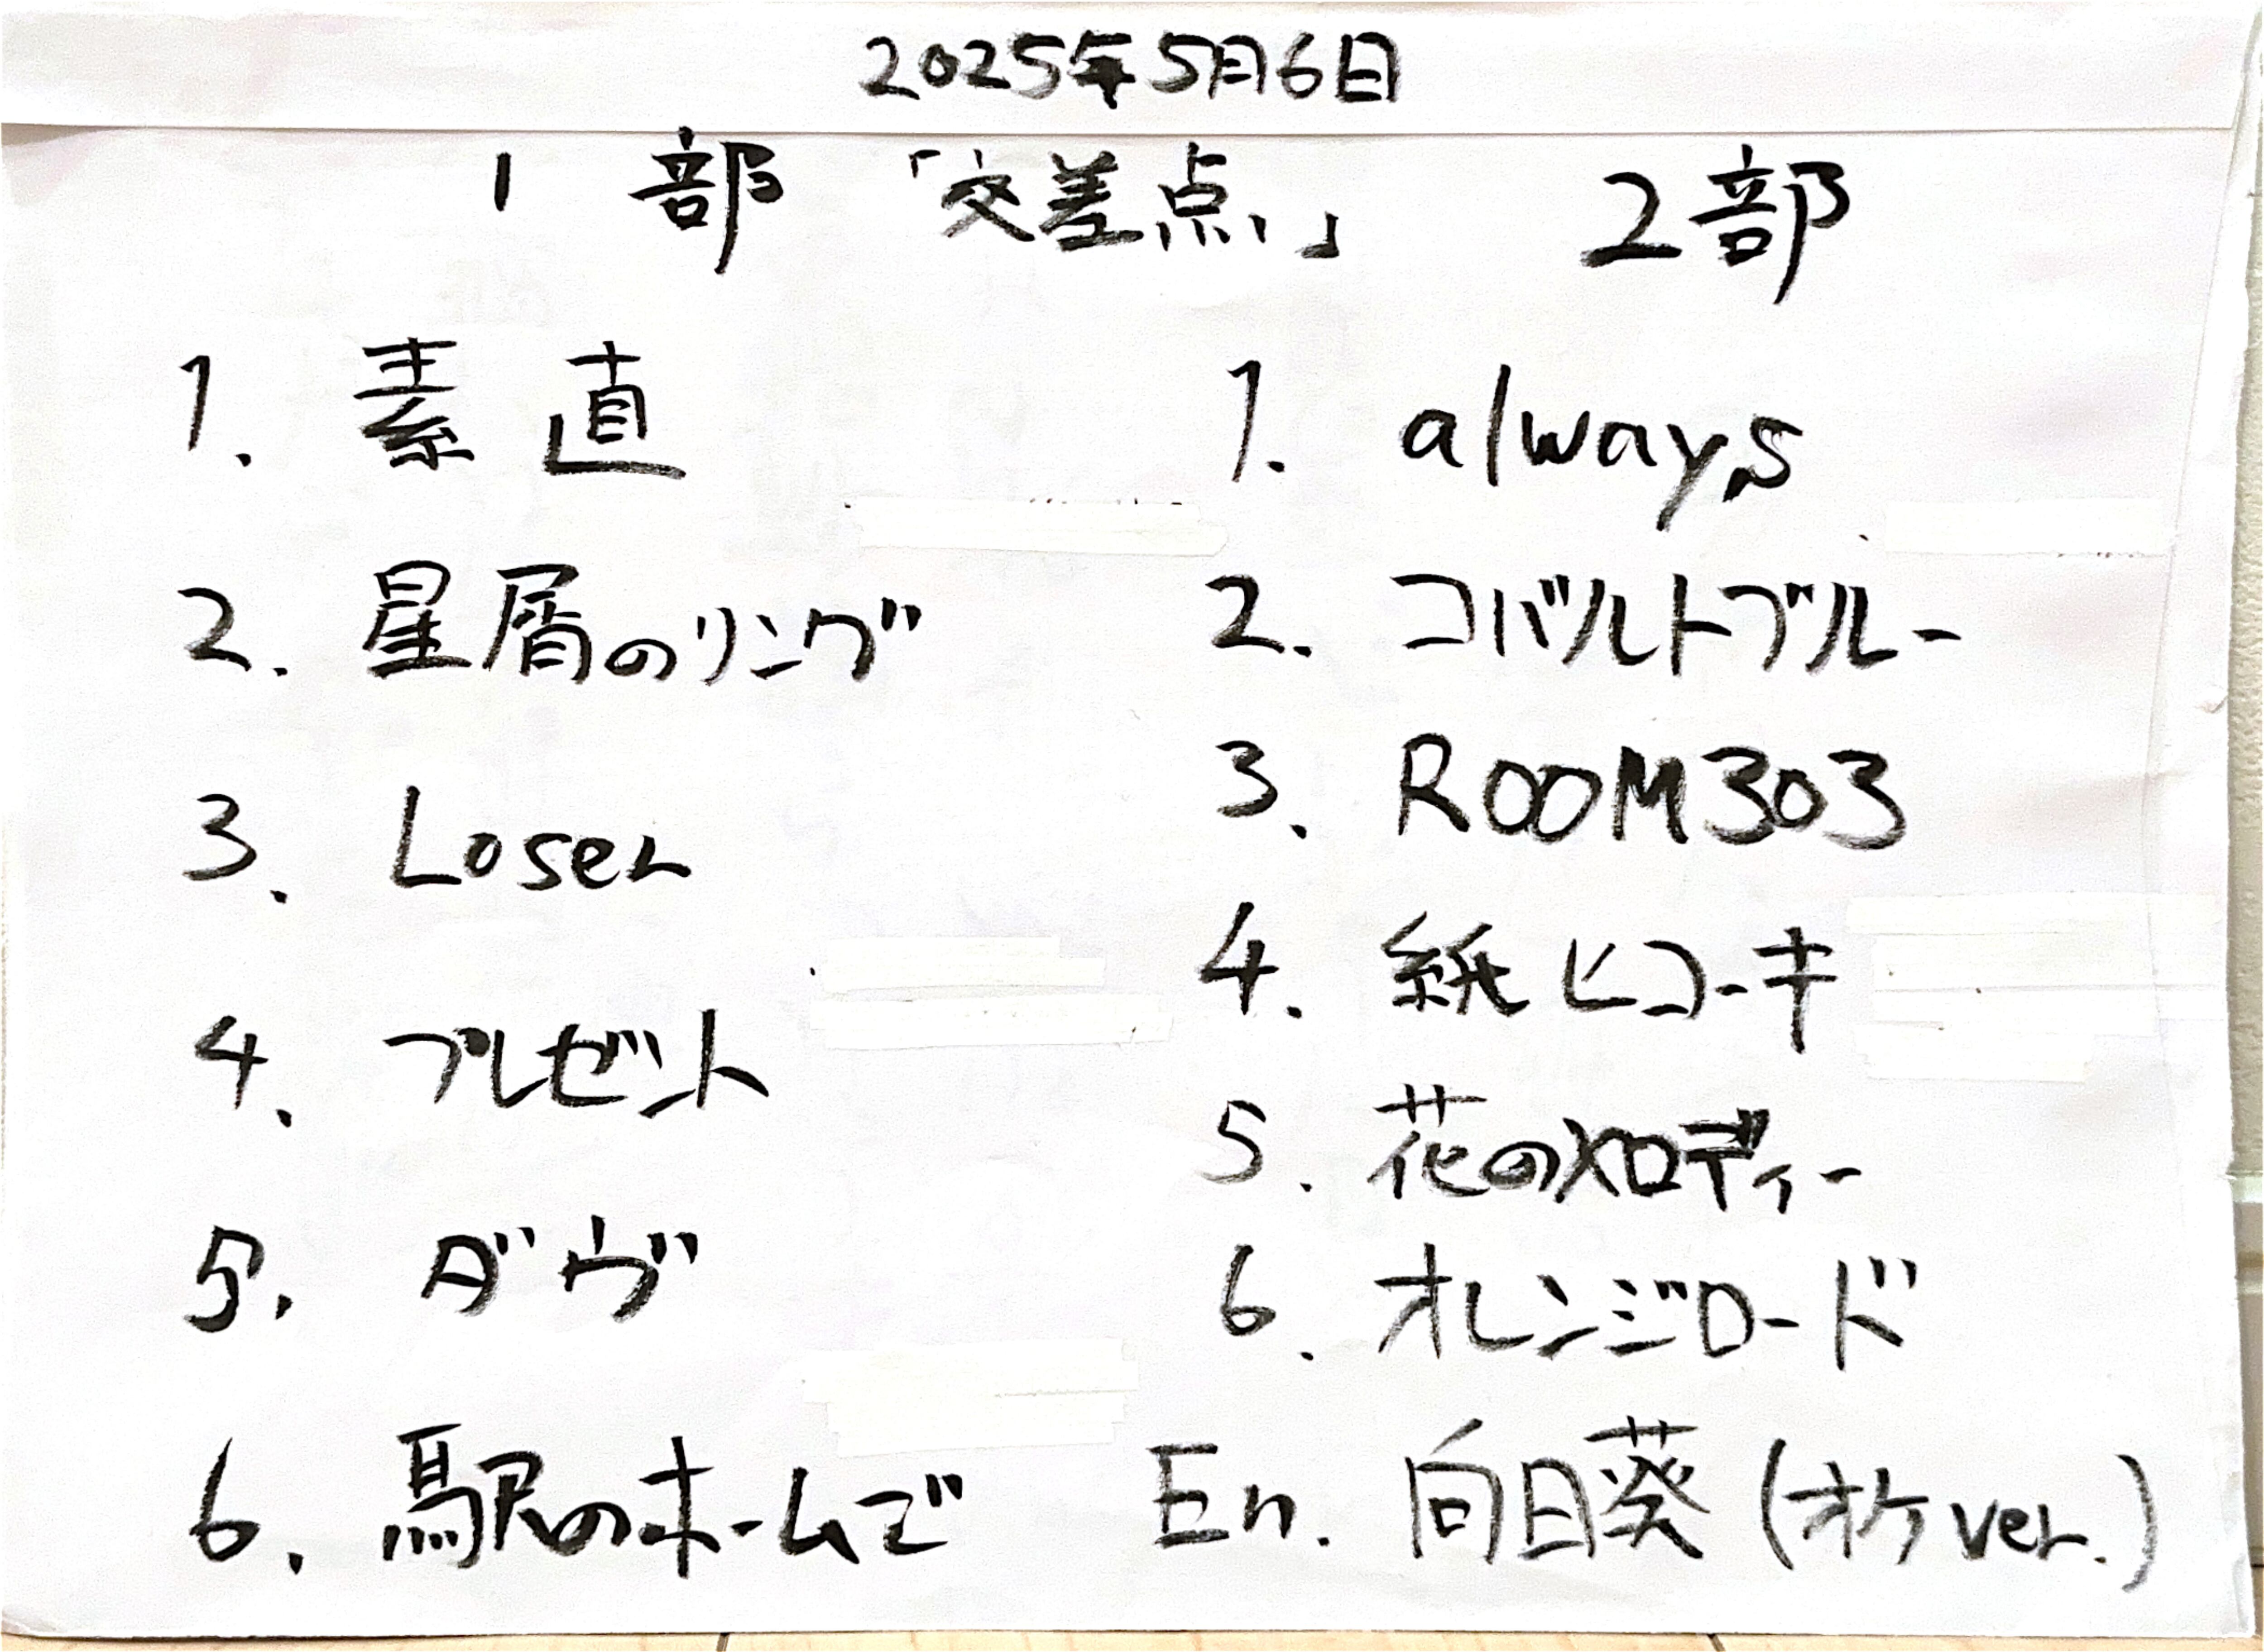 2025年5月6日
1部 「交差点」 2部
1. 素直
2. 星屑のリング
3. Loser
4. プレゼント
5. ダヴ
6. 駅のホームで
1. always
2. コバルトブルー
3. ROOM303
4. 紙ヒコーキ
5. 花のメロディー
6. オレンジロード
En. 向日葵(オケver.)